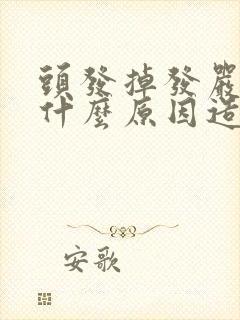 頭發掉發嚴
什麼原因造
安歌